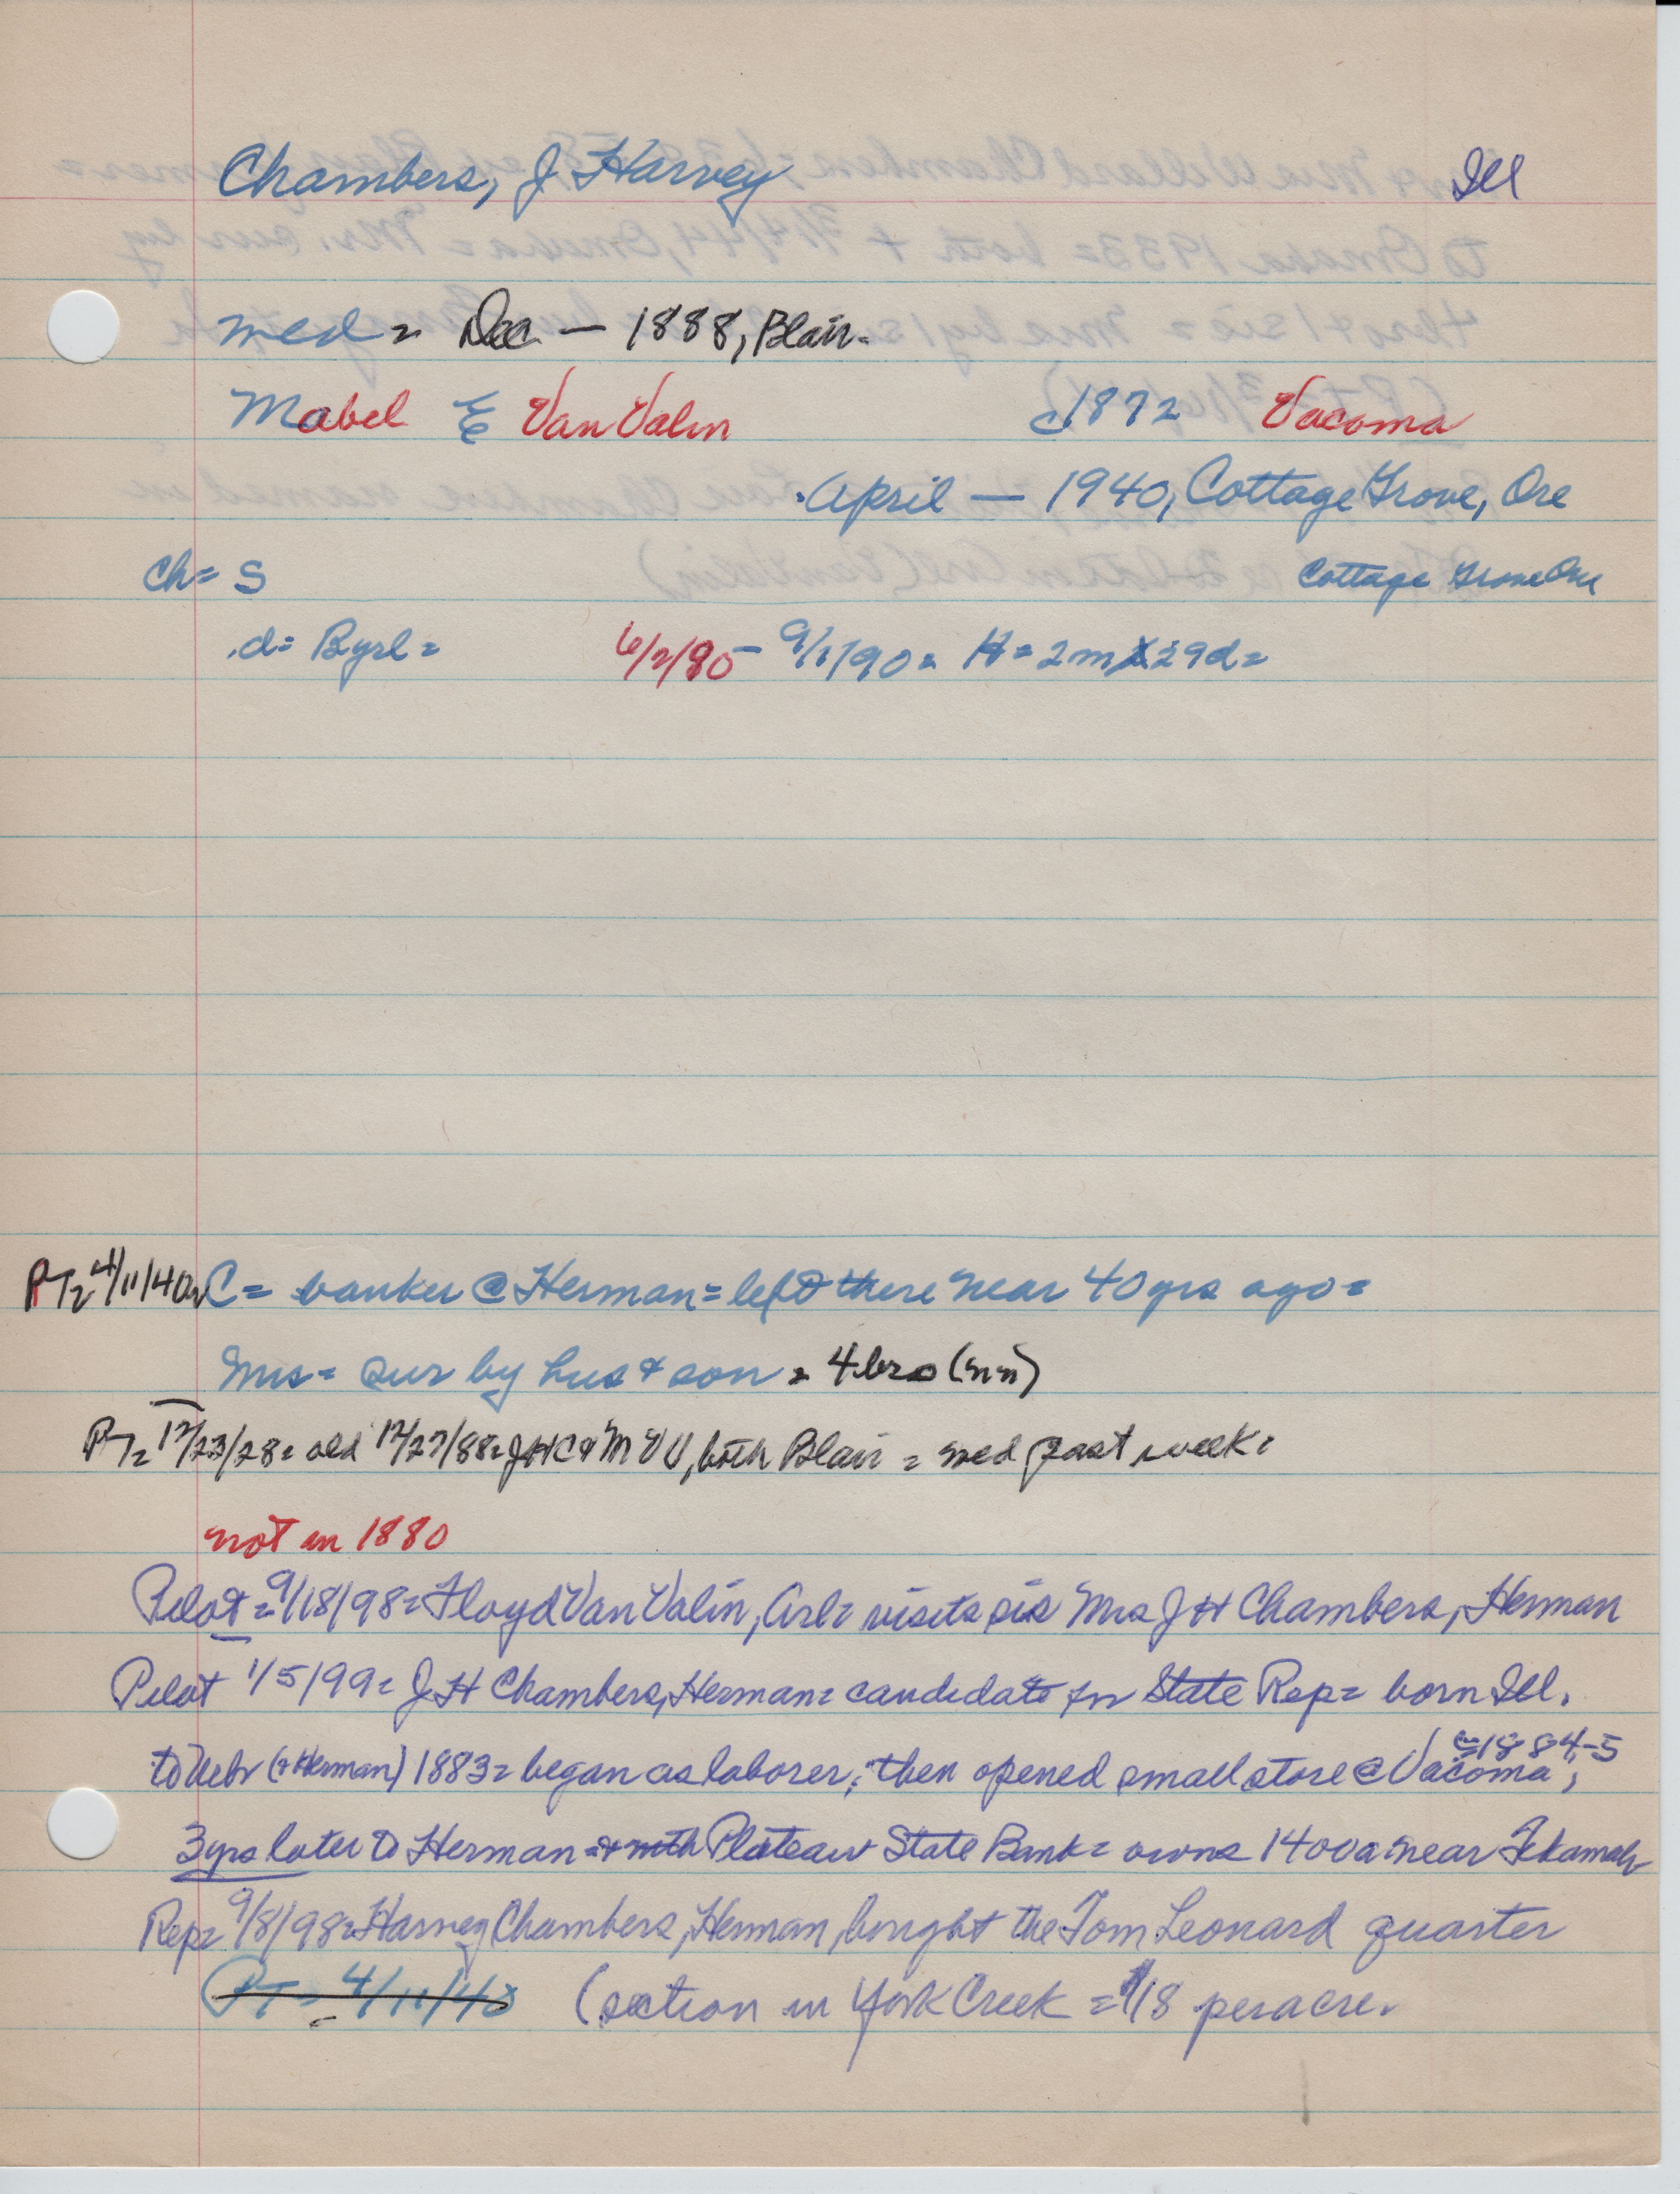 Chambers, J Harvey Ill
med = Dec — 1888, Blair.
Mabel E Van Valin c1872 Vacoma
April — 1940, Cottage Grove, Ore
Ch = S Cottage Grove Ore
d = Byrl = 6/2/90 - 9/1/90 = H = 2m 29d =
PT = 4/11/40 = C = banker @ Herman = left there near 40 yrs ago =
Mrs = sur by hus & son = 4 bro (nn)
PT = 12/23/28 = old 12/27/88 = JHC & M VV, both Blair = med past week =
not in 1880
Pilot = 9/18/98 = Floyd Van Valin, Arl = visits sis Mrs J H Chambers, Herman
Pilot 1/5/99 = J H Chambers, Herman = candidate for State Rep = born Ill.
to Nebr (& Herman) 1883 = began as laborer; then opened small store @ Vacoma =1884-5,
3 yrs later to Herman = & with Plateau State Bank = owns 1400a near Tekamah
Rep = 9/8/98 = Harvey Chambers, Herman, bought the Tom Leonard quarter
PT = 4/11/40 (section in York Creek = $18 per acre.